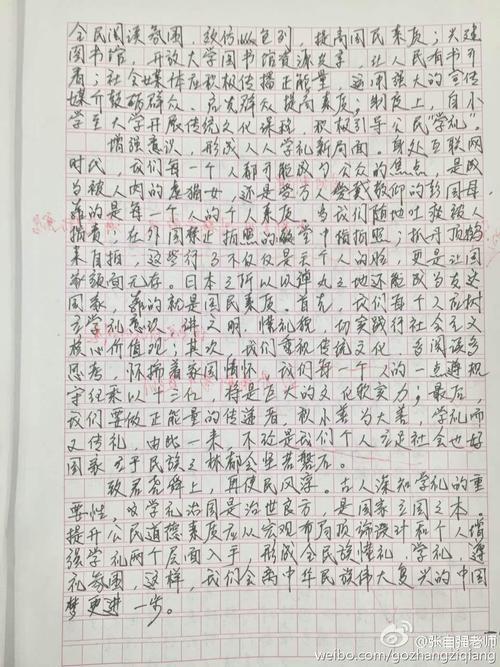 全民阅读氛围，效仿以色列，提高国民素质；兴建
图书馆，开放大学图书馆资源共享，让人民有书可
看；社会媒体应积极传播正能量，运用强大的宣传
媒介鼓励群众、启发群众提高素质；制度上，自小
学至大学开展传统文化课程，积极引导公民"学礼"。
增强意识，形成人人学礼新局面。身处互联网
时代，我们每一个人都可能成为公众的焦点，是成
为被人肉的 女，还是受万人爱戴敬仰的彭国母，
靠的是每一个人的个人素质。当我们随地吐痰被人
指责；在外国禁止拍照的教堂中偷拍照；扒开顶
来自拍，这些行为不仅仅是丢个人的脸，更是让国
家颜面无存。日本之所以以弹丸之地还能成为发达
国家，靠的就是国民素质。首先，我们每个人应树
立学礼意识，讲文明，懂礼貌，切实践行社会主义
核心价值观；其次，我们重视传统文化，多阅读多
思考，怀揣着家国情怀，我们每一个人的一点遵规
守纪乘以十三亿，将是巨大的文化软实力；最后，
我们要做正能量的传递者，积小善为大善，学礼而
又传礼，由此一来，不论是我们个人立足社会也好
国家立于民族之林都会坚若磐石。
致君尧舜上，再使民风淳。古人深知学礼的重
要性，以学礼治国是治世良方，是国家立国之本。
提升公民道德素质应从宏观布局顶端设计和个人增
强学礼两个层面入手，形成全民族懂礼，学礼，遵
礼氛围，这样，我们会离中华民族伟大复兴的中国
梦更进一步。
@张自强老师
weibo.com/gozhangziqiang